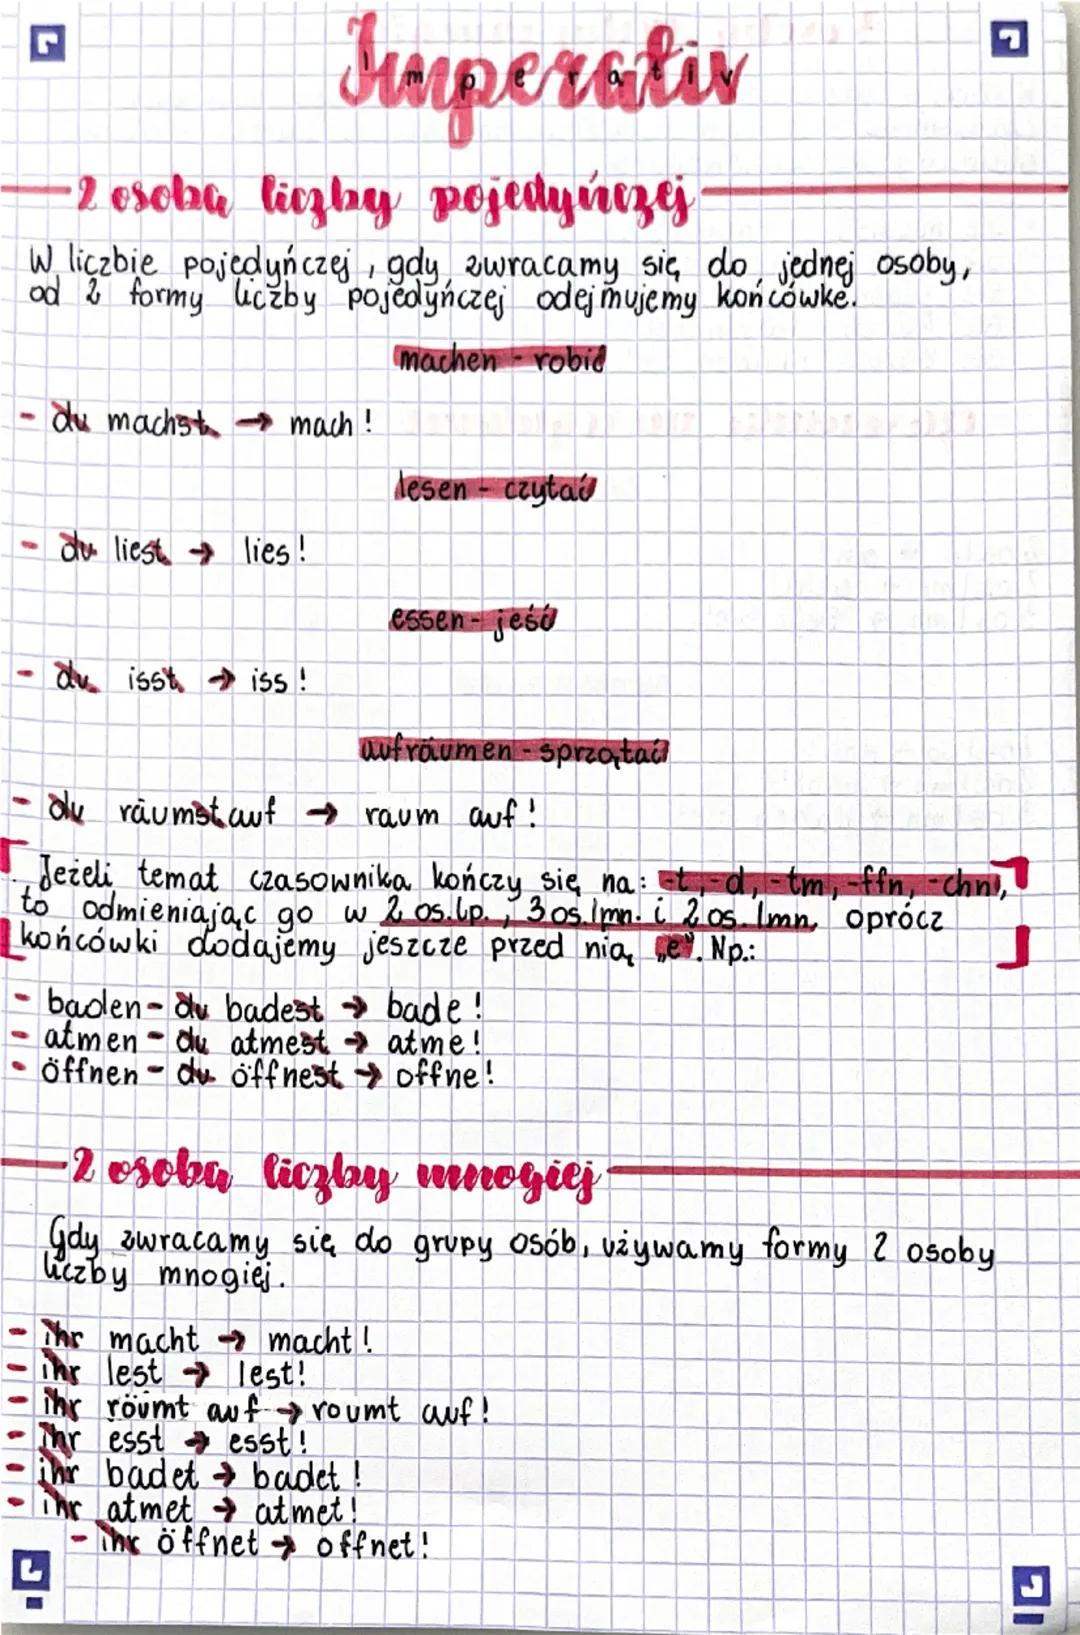 Imperativ
2 osoba liczby pojedyńczej
W liczbie pojedyńczej, gdy zwracamy się do jednej osoby,
od 2 formy liczby pojedyńczej odejmujemy końcówke.
machen - robić
- du machst → mach!
lesen - czytać
- du liest → lies!
essen - jeść
- du isst → iss!
aufräumen - sprzątać
- du räumst auf → raum auf!
Jeżeli temat czasownika kończy się na: -t, -d, -tm, -ffn, -chn,
to odmieniając go w 2 os.lp., 3 os.lmn. i 2 os. lmn. oprócz
końcówki dodajemy jeszcze przed nią „e". Np.:
- baden - du badest → bade!
- atmen - du atmest → atme!
- öffnen - du öffnest → offne!
2 osoba liczby mnogiej
Gdy zwracamy się do grupy osób, używamy formy 2 osoby
liczby mnogiej.
- ihr macht → macht!
- ihr lest → lest!
- ihr röumt auf → roumt auf!
- ihr esst → esst!
- ihr badet → badet!
- ihr atmet → atmet!
- ihr öffnet → offnet!